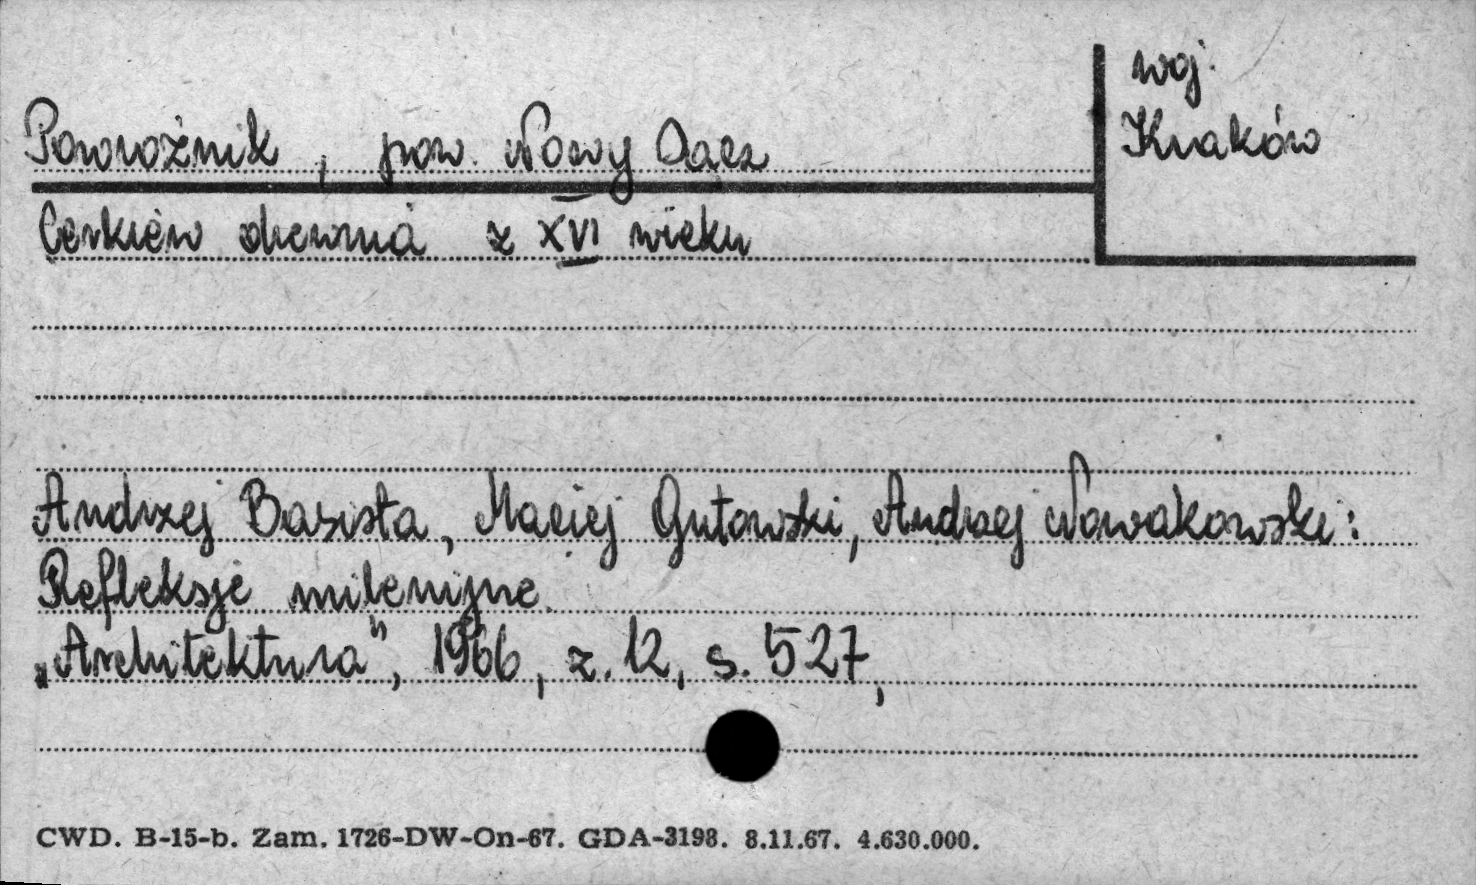 woj.
Kraków
Powroźnik, pow. Nowy Sącz
Cerkiew drewniana z XVI wieku
Andrzej Basista, Maciej Gutowski, Andrzej Nowakowski:
Refleksje milenijne.
„Architektura”, 1966, z. 12, s. 527,
CWD. B-15-b. Zam. 1726-DW-On-67. GDA-3198. 8.11.67. 4.630.000.